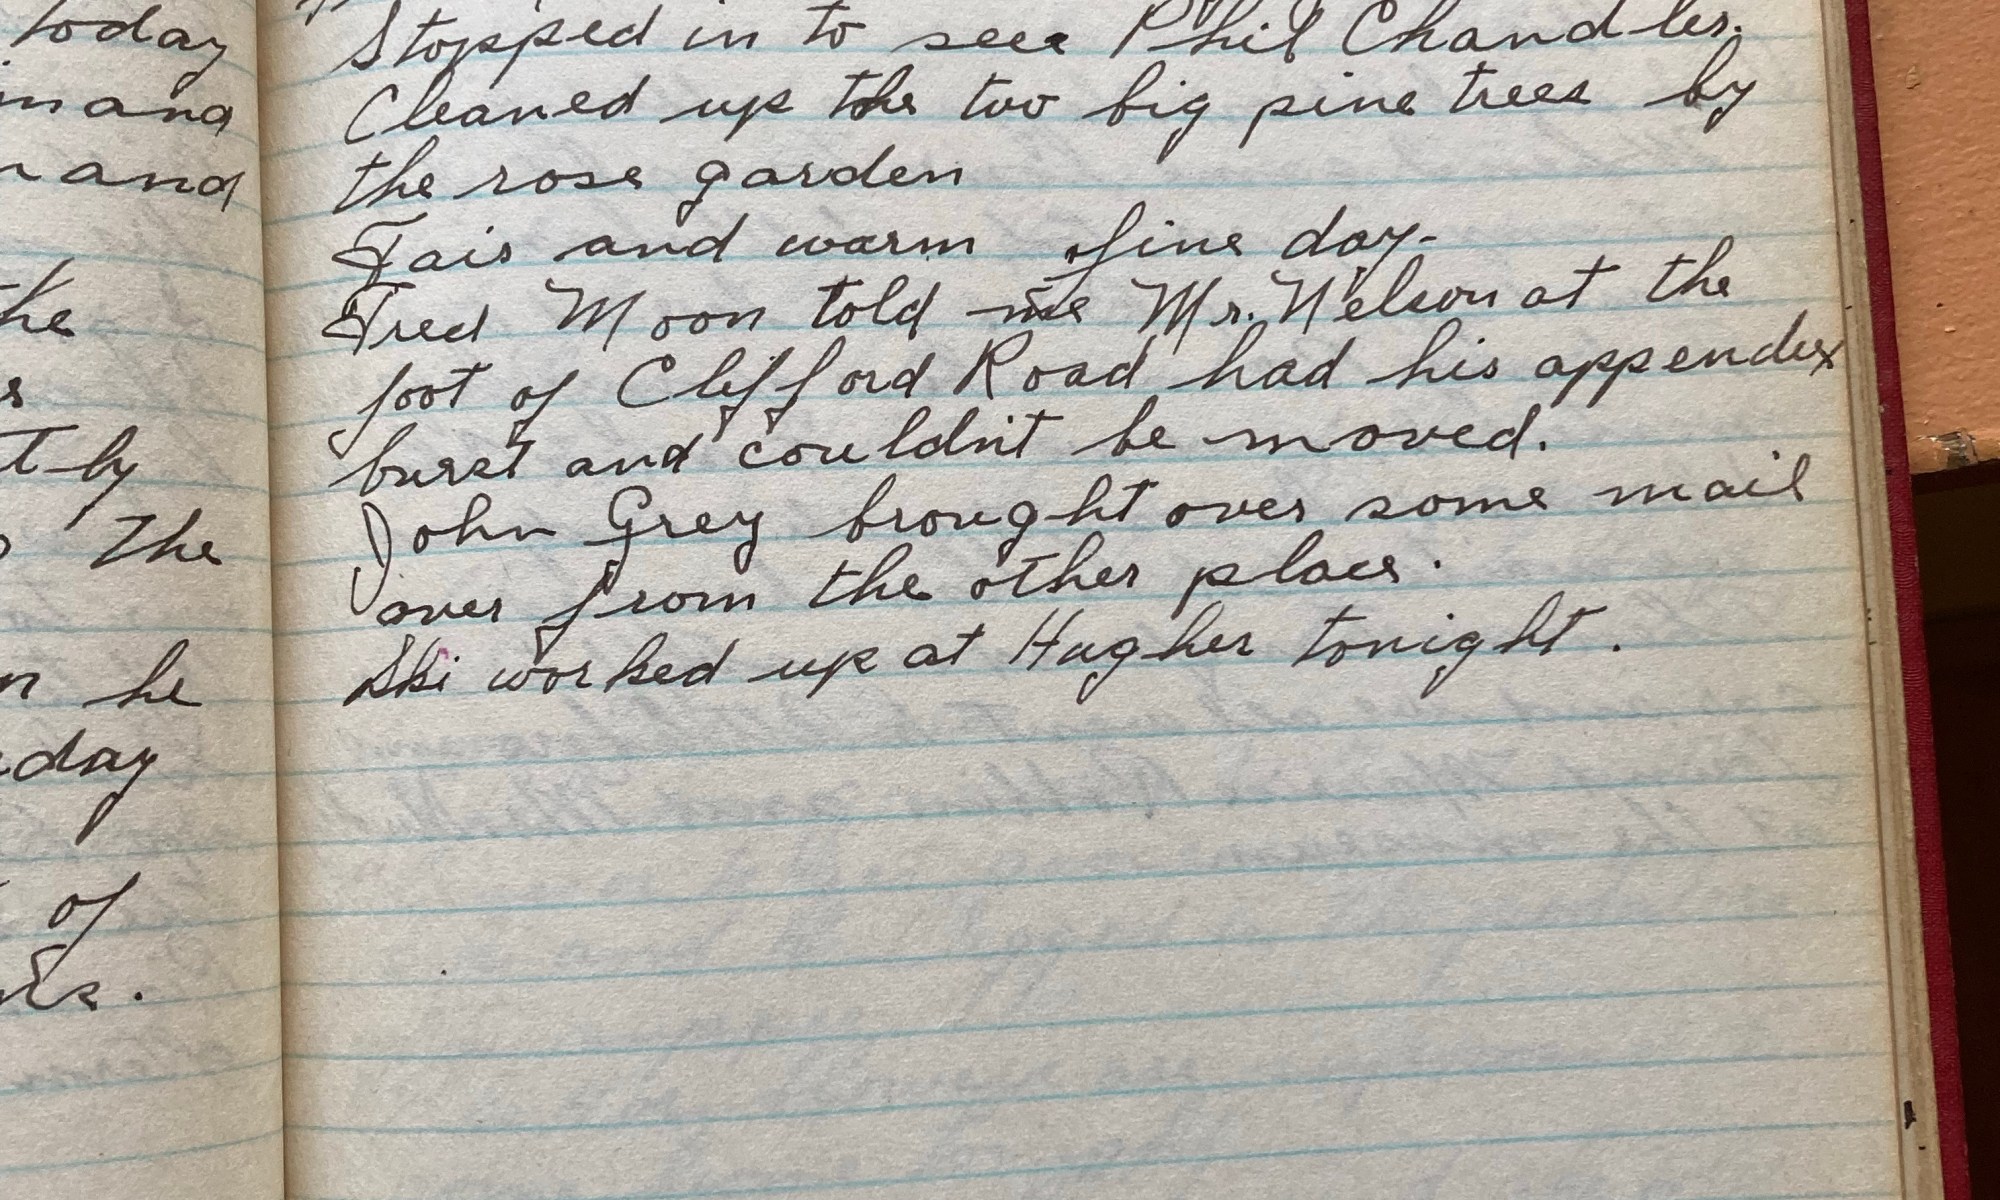 today
and
and
the
by
The
he
day
of
Stopped in to see Phil Chandler.
Cleaned up the two big pine trees by
the rose garden
Fair and warm fine day-
Fred Moon told me Mr. Nelson at the
foot of Clifford Road had his appendix
burst and couldn't be moved.
John Grey brought over some mail
over from the other place.
Ski worked up at Hughes tonight.